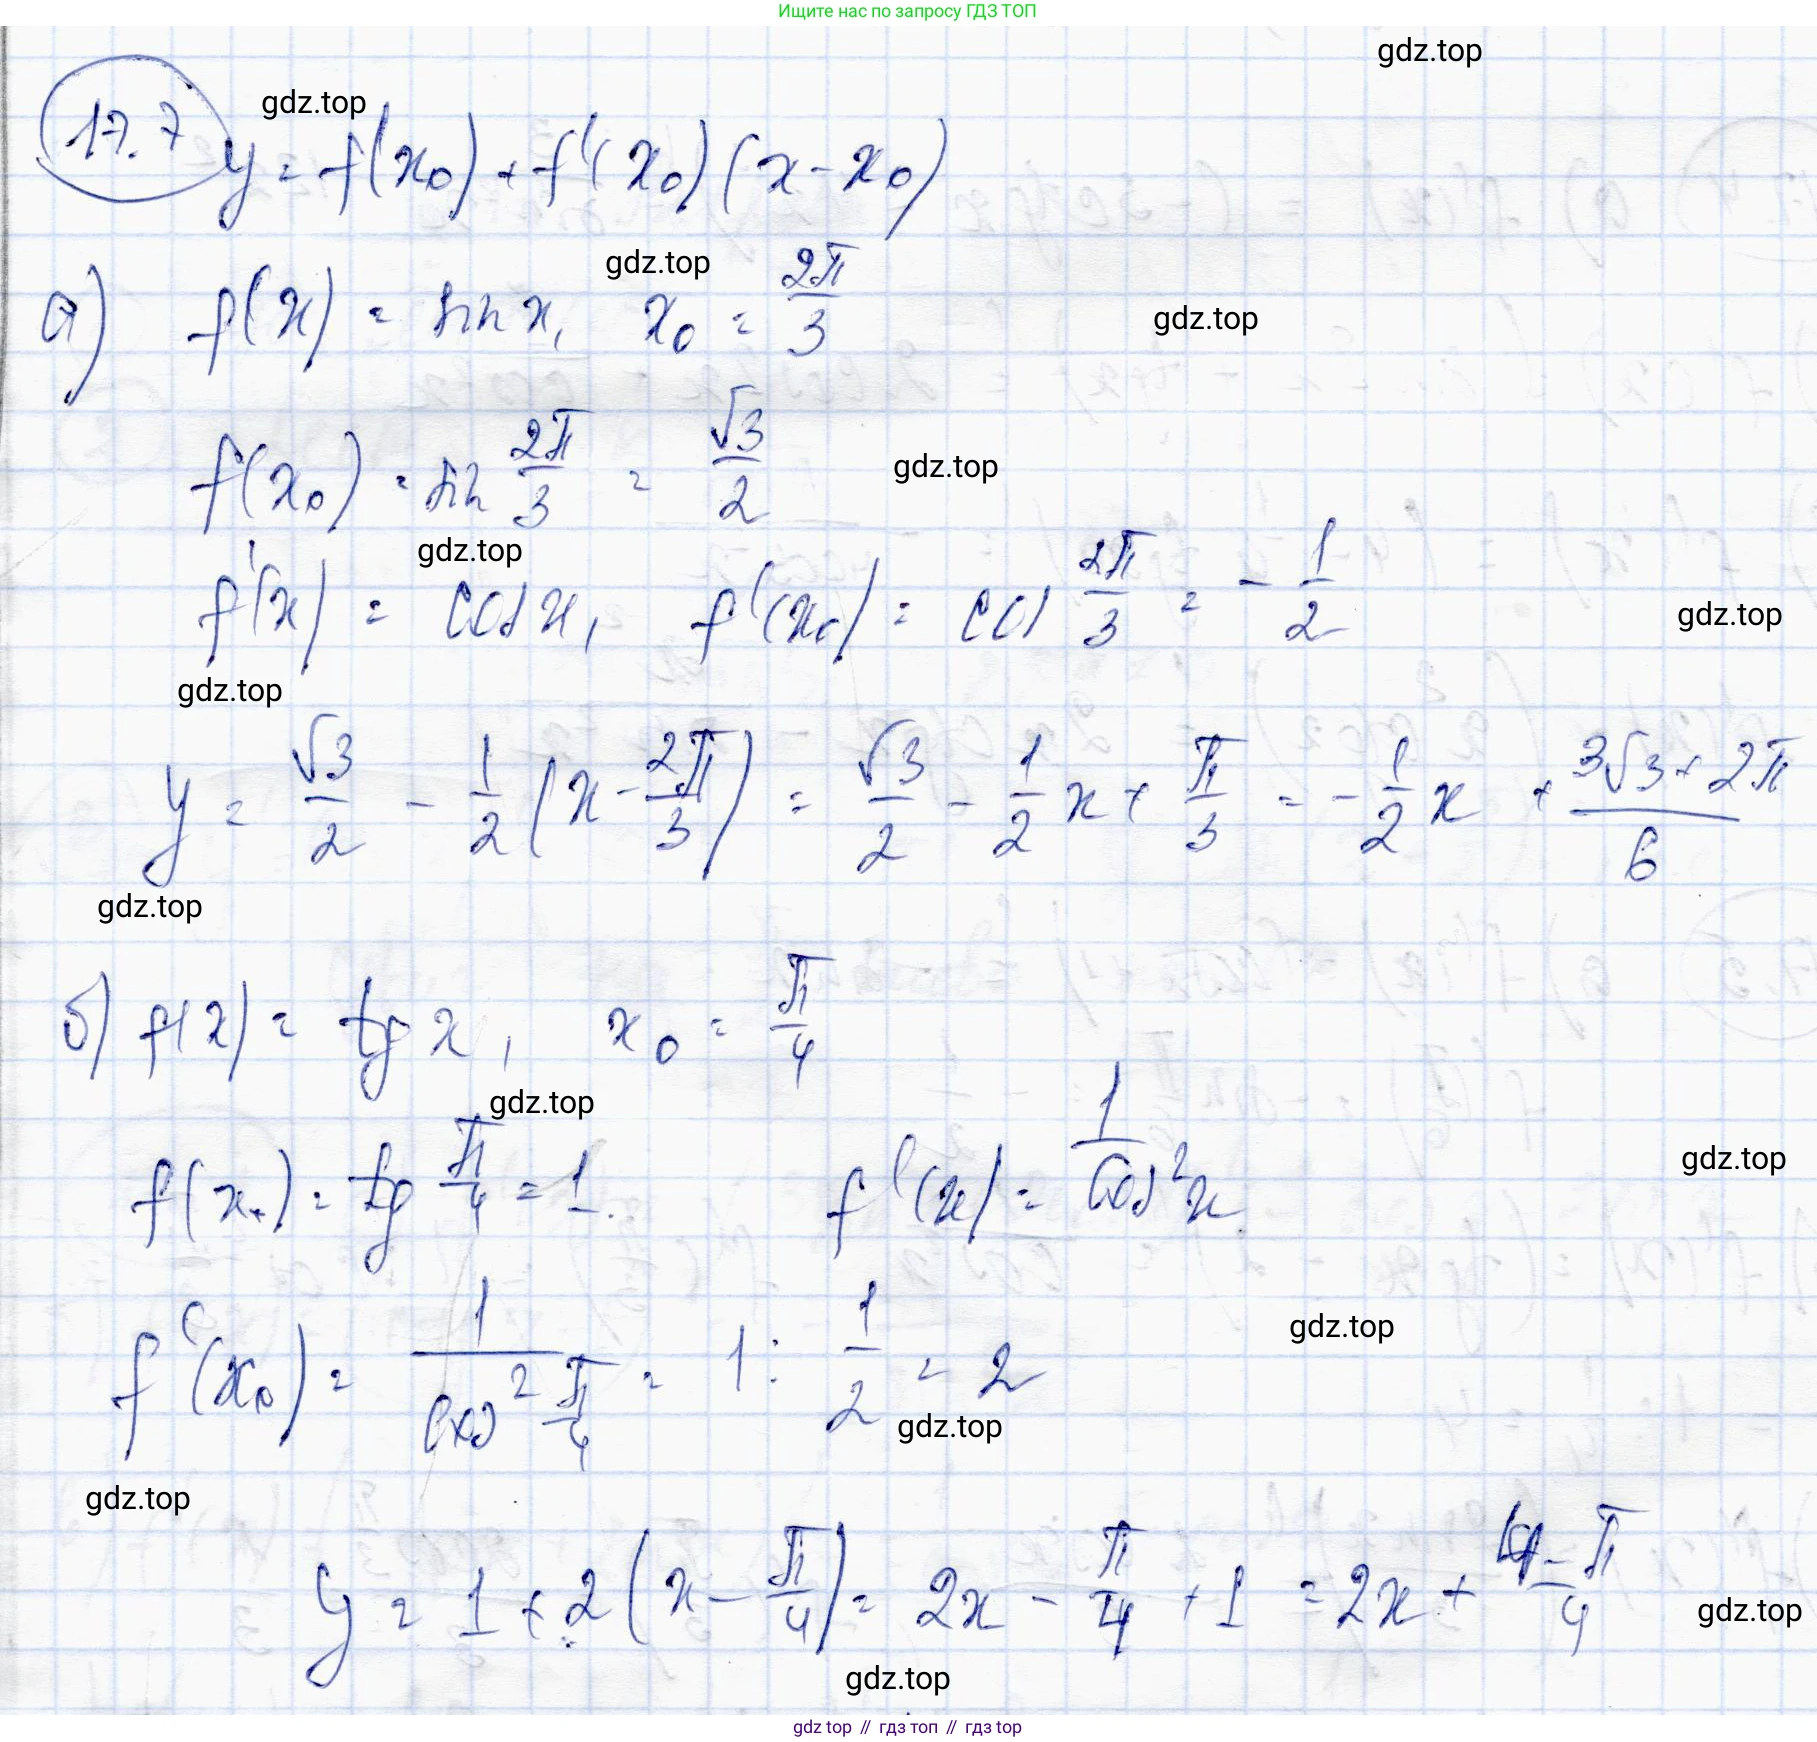 Ищите нас по запросу ГДЗ ТОП
gdz.top
17.7 gdz.top
y = f(x₀) + f'(x₀)(x - x₀)
gdz.top
а) f(x) = sin x, x₀ = 2π/3
gdz.top
f(x₀) = sin 2π/3 = √3/2
gdz.top
gdz.top
f'(x) = cos x, f'(x₀) = cos 2π/3 = - 1/2
gdz.top
gdz.top
y = √3/2 - 1/2 (x - 2π/3) = √3/2 - 1/2 x + π/3 = - 1/2 x + (3√3 + 2π)/6
gdz.top
б) f(x) = tg x, x₀ = π/4
gdz.top
f(x₀) = tg π/4 = 1. f'(x) = 1/cos²x
gdz.top
gdz.top
f'(x₀) = 1/cos² π/4 = 1 : 1/2 = 2
gdz.top
gdz.top
y = 1 + 2(x - π/4) = 2x - π/4 + 1 = 2x + (4 - π)/4
gdz.top
gdz.top
gdz top // гдз топ // гдз top